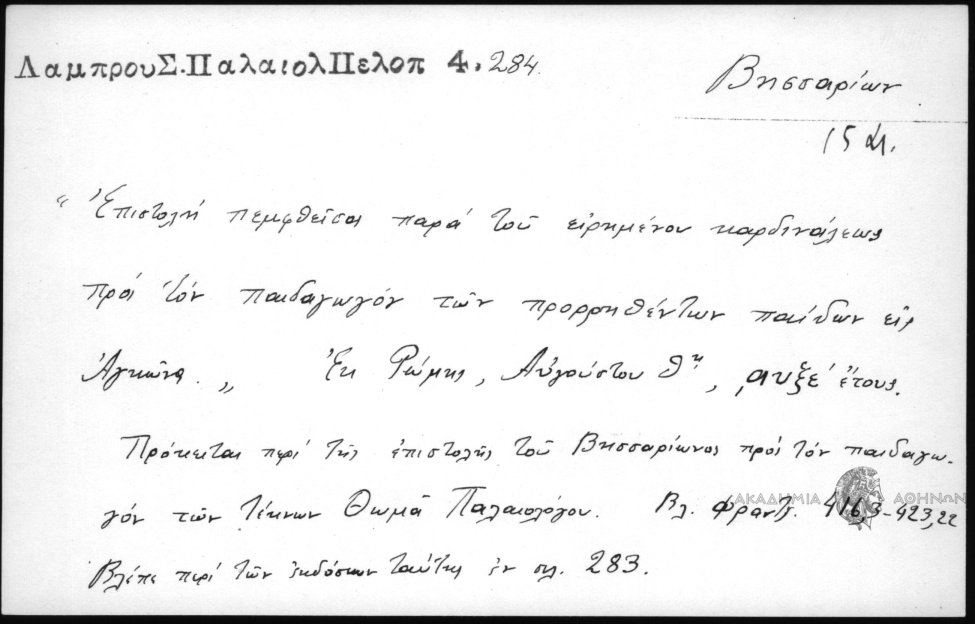 ΛαμπρουΣ.ΠαλαιολΠελοπ 4, 284.
Βησσαρίων
15 αι.
"Ἐπιστολή πεμφθεῖσα παρά τοῦ εἰρημένου καρδινάλεως
πρός τόν παιδαγωγόν τῶν προρρηθέντων παίδων εἰς
Ἀγκῶνα. „ Ἐκ Ρώμης, Αὐγούστου θῃ, ͵αυξε´ ἔτους.
Πρόκειται περί τῆς ἐπιστολῆς τοῦ Βησσαρίωνος πρός τόν παιδαγω-
γόν τῶν τέκνων Θωμᾶ Παλαιολόγου. Βλ. Φραντζ. 416,3-423,22
Βλέπε περί τῶν ἐκδόσεων ταύτης ἐν σελ. 283.
ΑΚΑΔΗΜΙΑ ΑΘΗΝΩΝ